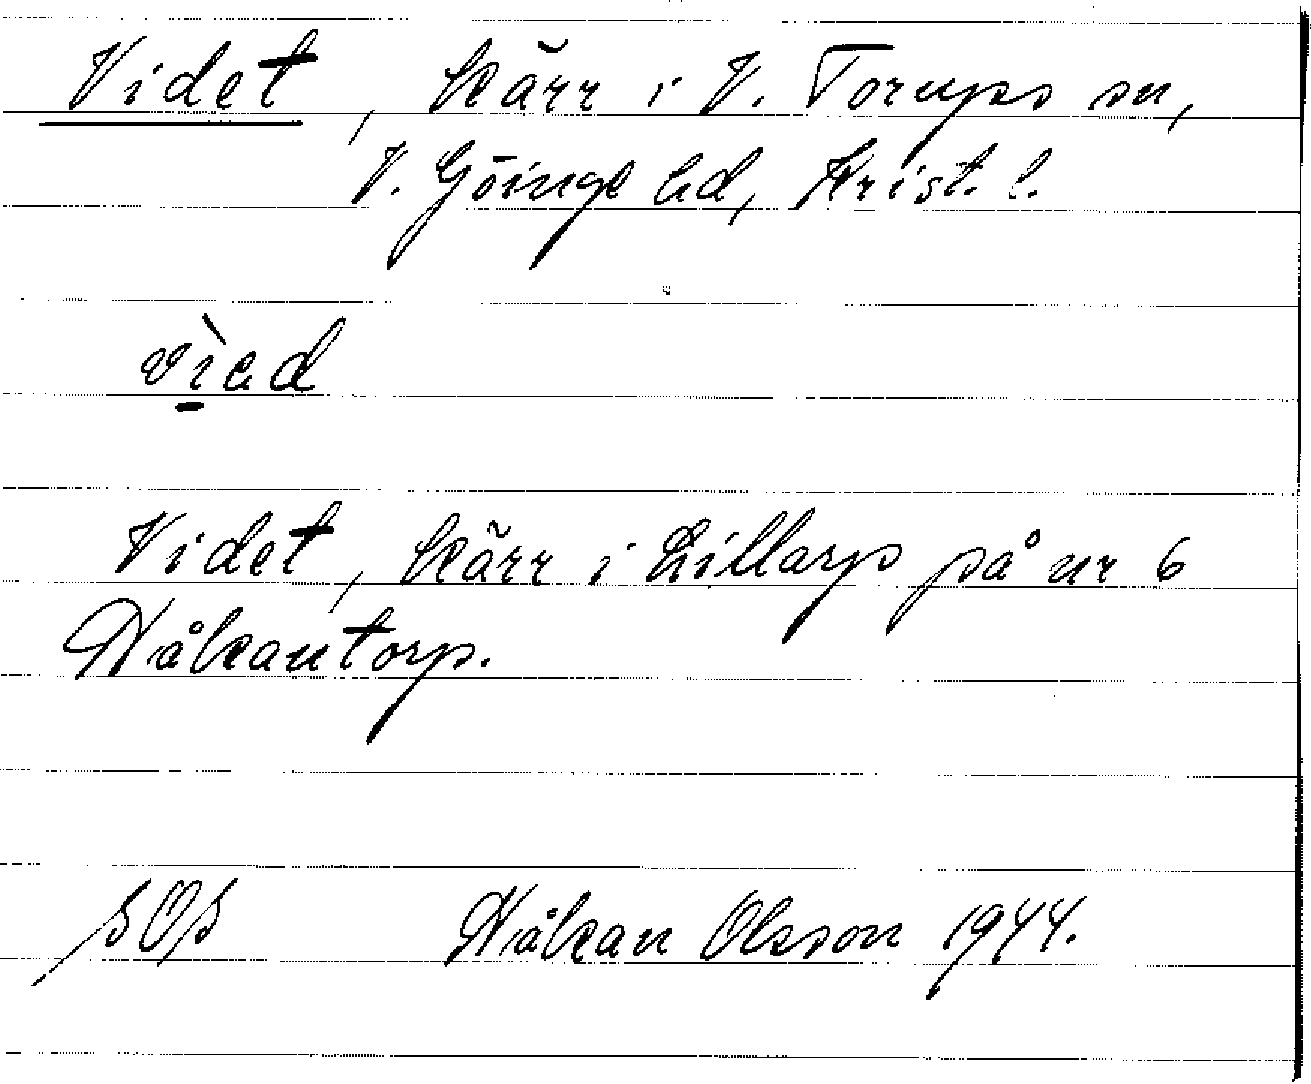 Videt, kärr i V. Torups sn,
V. Göinge hd, Krist. l.
Videt, kärr i Lillarp på nr 6
Håkantorp.
SOS Håkan Olsson 1944.